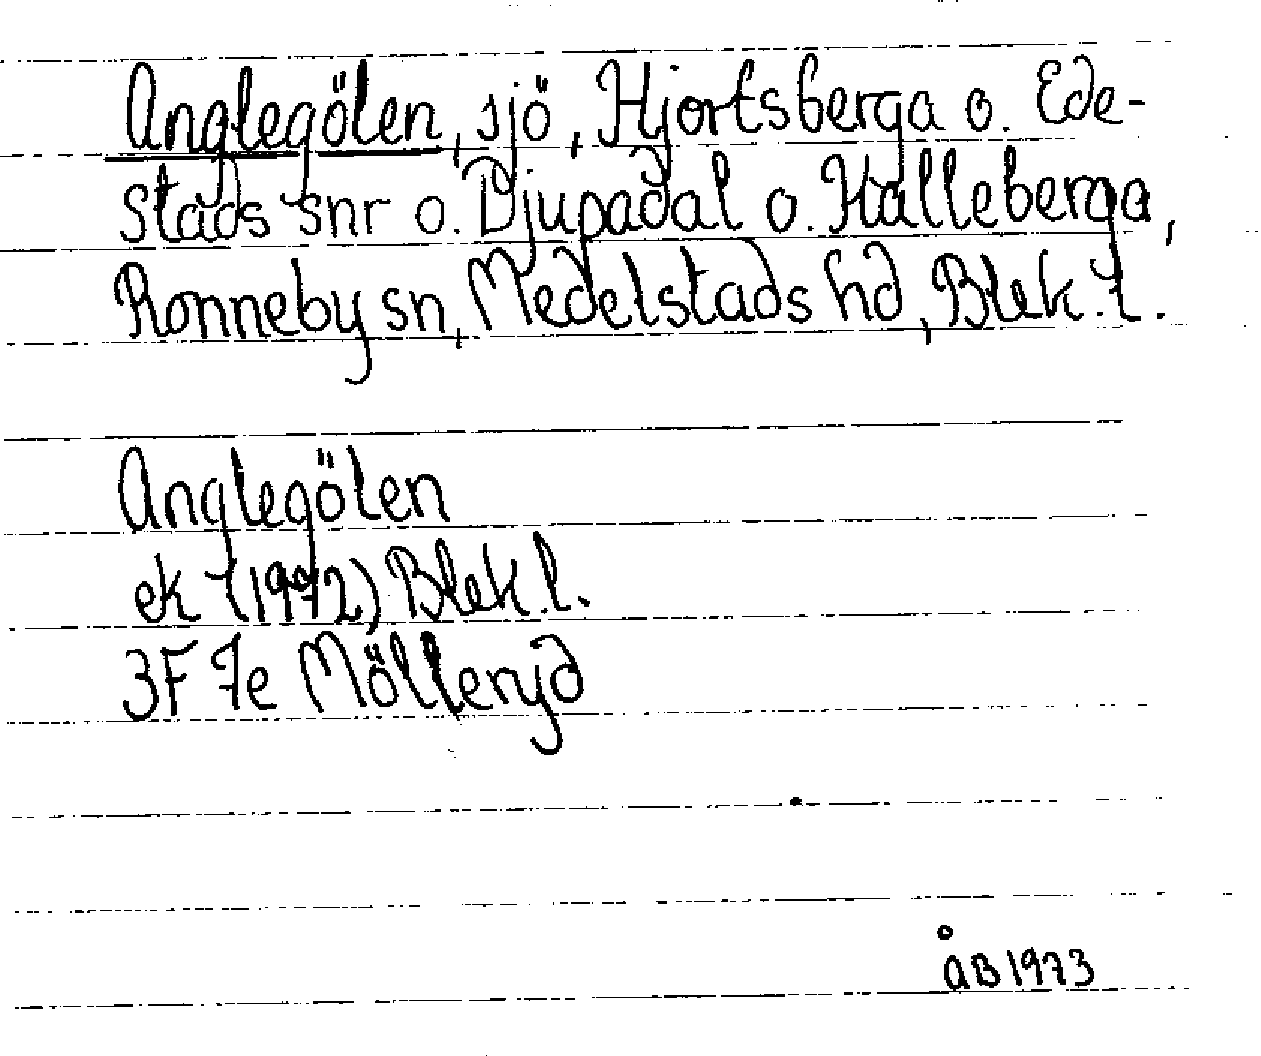 Anglegölen, sjö, Hjortsberga o. Ede-
stads snr o. Djupadal o. Kalleberga,
Ronneby sn, Medelstads hd, Blek. l.
Anglegölen
ek (1972) Blek. l.
3F 7e Möllenyd
ÅB 1973